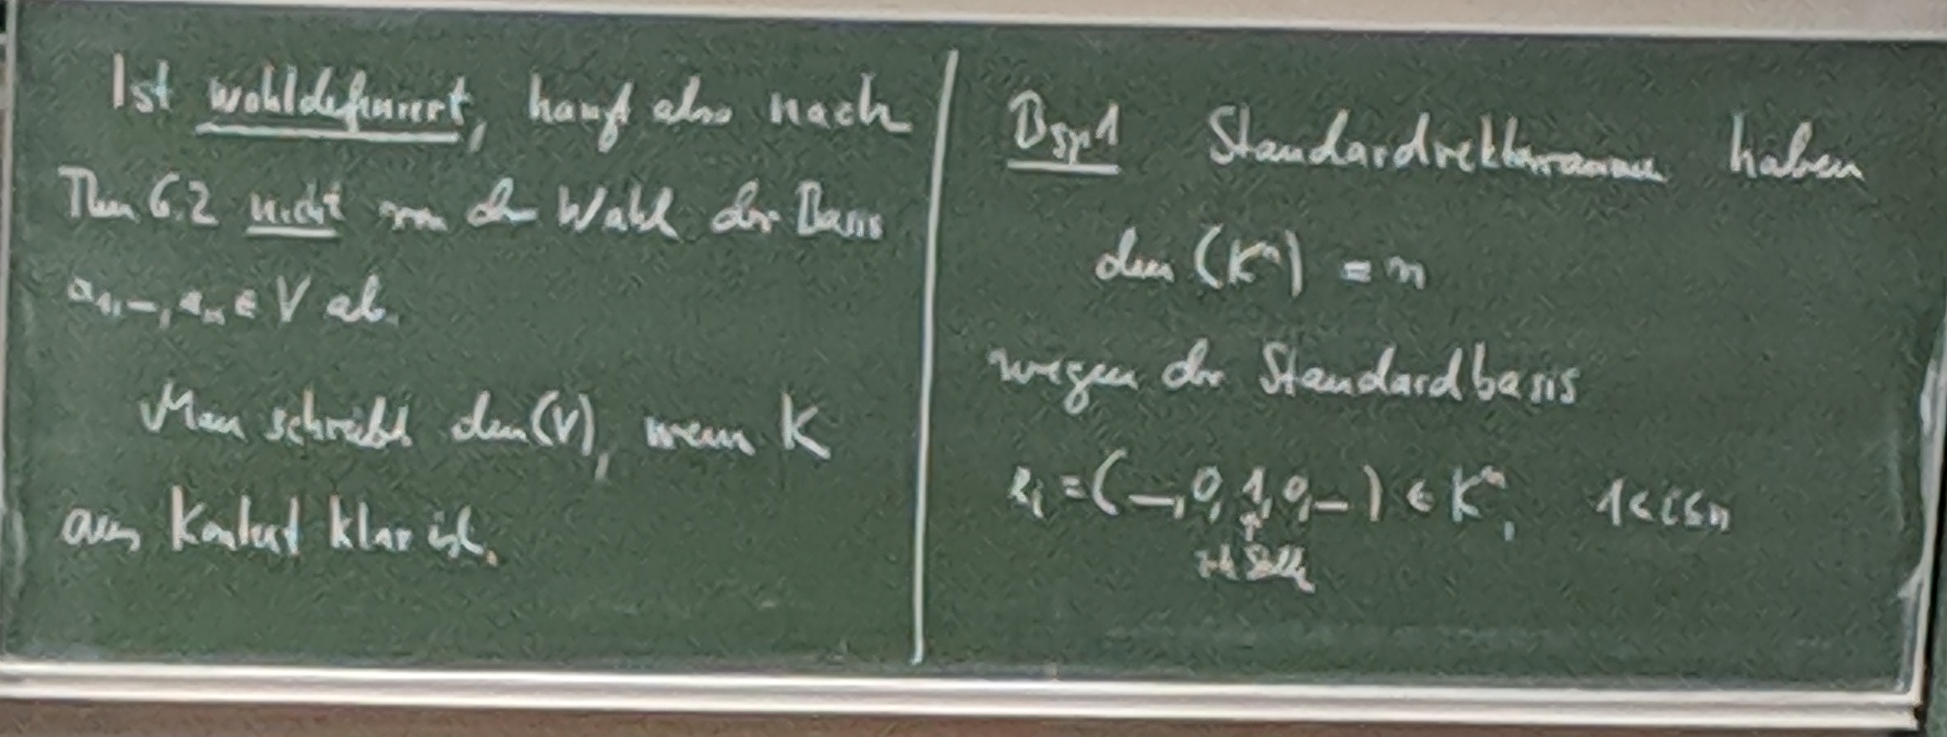 Ist wohldefiniert, hängt also nach
Thm 6.2 nicht von der Wahl der Basis
a₁,…,aₙ ∈ V ab.
Man schreibt dim(V), wenn K
aus Kontext klar ist.
Bsp 1 Standardvektorräume haben
dim (Kⁿ) = n
wegen der Standardbasis
eᵢ = (…,0,1,0,…) ∈ Kⁿ, 1≤i≤n
↑
i-te Stelle